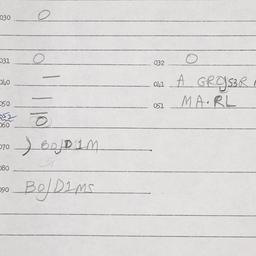 030 O
031 O 032 O
040 — 041 A GRC
050 — 051 MA.RL
052
060 O
070 ) BO/D1M
080
090 BO/D1MS